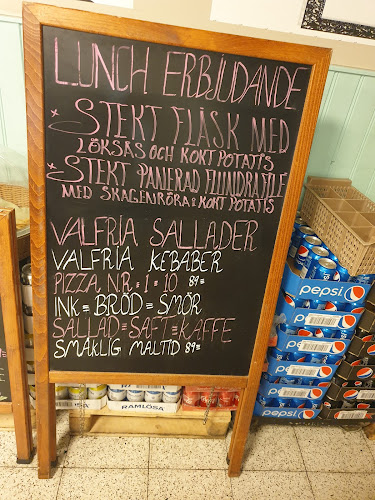 LUNCH ERBJUDANDE
* STEKT FLÄSK MED
LÖKSÅS OCH KOKT POTATIS
* STEKT PANERAD FLUNDRAFILE
MED SKAGENRÖRA & KOKT POTATIS
VALFRIA SALLADER
VALFRIA KEBABER
PIZZA NR = 1 = 10 89=
INK = BRÖD = SMÖR
SALLAD = SAFT = KAFFE
SMAKLIG MÅLTID 89=
pepsi
pepsi
pepsi
pepsi
pepsi
RAMLÖSA
RAMLÖSA